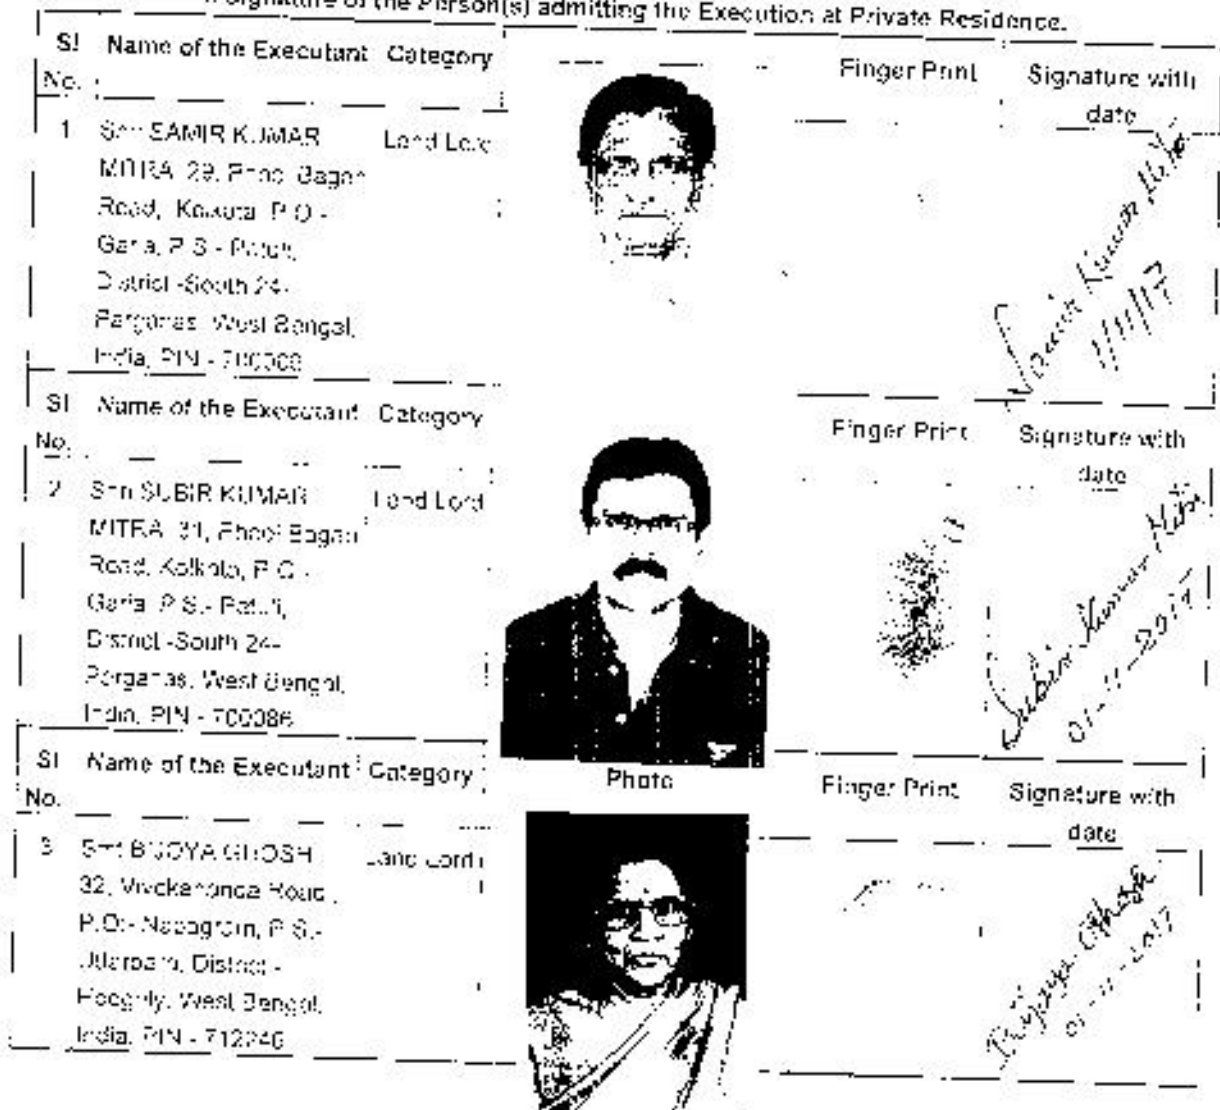 Signature of the Person(s) admitting the Execution at Private Residence.
Sl No. Name of the Executant Category Finger Print Signature with date
1 Shri SAMIR KUMAR Land Lord
MITRA 29, Phool Bagan
Road, Kolkata, P.O -
Garia, P.S - Patuli,
District -South 24-
Parganas, West Bengal,
India, PIN -
Samir Kumar Mitra
1/11/17
Sl No. Name of the Executant Category Finger Print Signature with date
2 Shri SUBIR KUMAR Land Lord
MITRA 31, Phool Bagan
Road, Kolkata, P.O -
Garia, P.S.- Patuli,
District -South 24-
Parganas, West Bengal,
India, PIN - 700086
Subir Kumar Mitra
01-11-2017
Sl No. Name of the Executant Category Photo Finger Print Signature with date
3 Smt BIJOYA GHOSH Land Lord
32, Vivekananda Road,
P.O:- Nabagram, P.S.-
Uttarpara, District -
Hooghly, West Bengal,
India, PIN - 712246
Bijoya Ghosh
01-11-2017